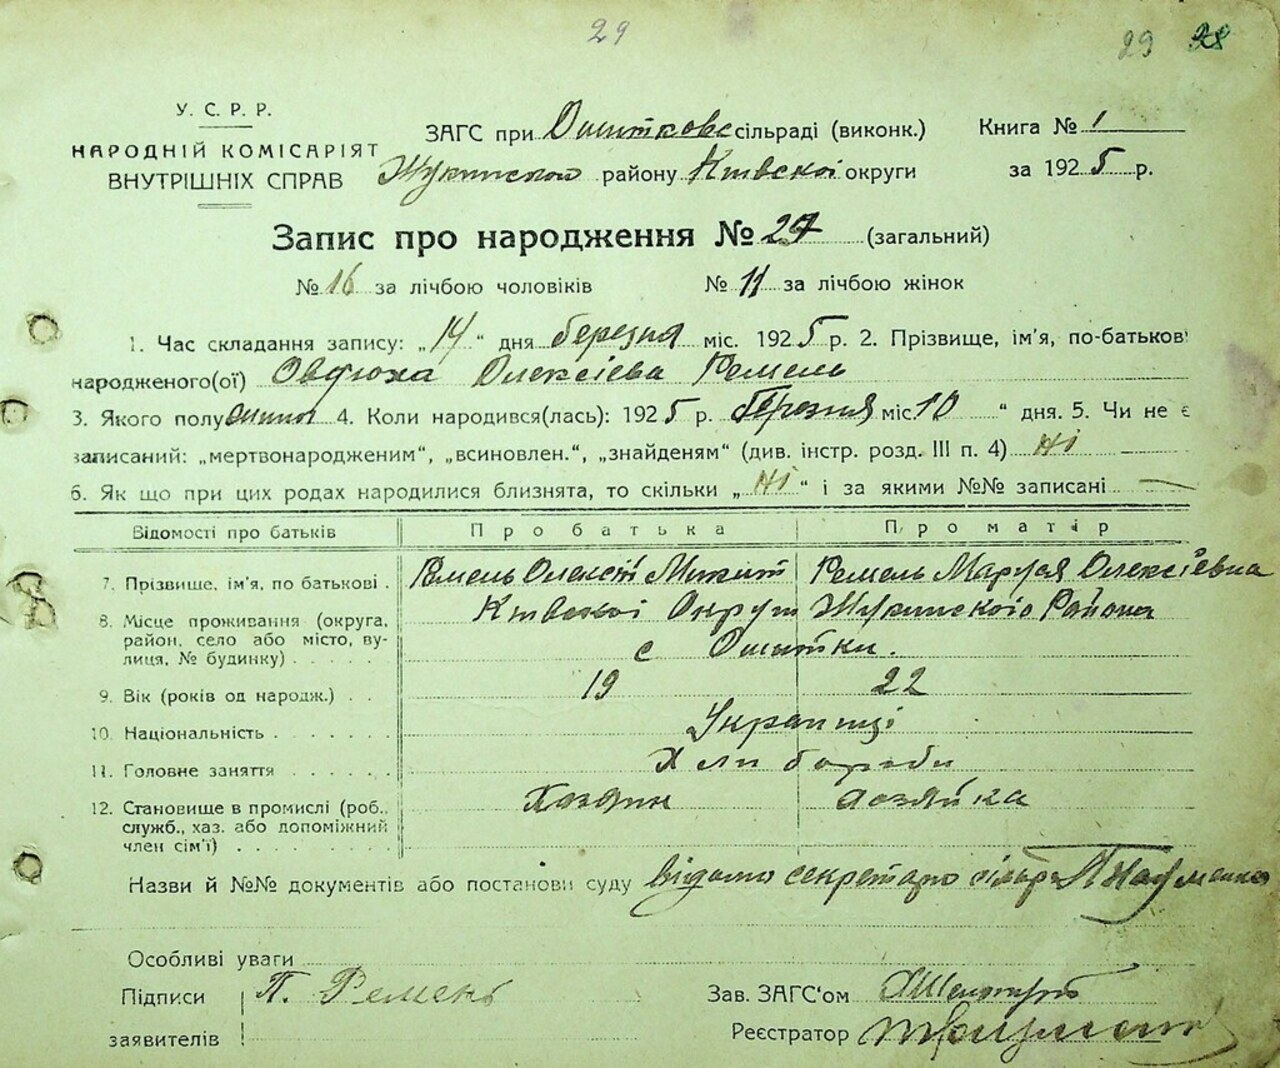 29
29 28
У. С. Р. Р.
НАРОДНІЙ КОМІСАРІЯТ
ВНУТРІШНІХ СПРАВ
ЗАГС при Ошитковс сільраді (виконк.)
Книга № 1
району Київскої округи
за 1925 р.
Запис про народження № 27 (загальний)
№ 16 за лічбою чоловіків № 11 за лічбою жінок
1. Час складання запису: „14“ дня березня міс. 1925 р. 2. Прізвище, ім'я, по-батькові
народженого(ої) Овдюха Олексіева Ремель
3. Якого полу 4. Коли народився(лась): 1925 р. березня міс 10 “ дня. 5. Чи не є
записаний: „мертвонародженим“, „всиновлен.“, „знайденям“ (див. інстр. розд. III п. 4) Ні
6. Як що при цих родах народилися близнята, то скільки „Ні“ і за якими №№ записані —
Відомості про батьків Про батька Про матір
7. Прізвище, ім'я, по батькові . Ремель Олексій Микит Ремель Маруся Олексіёвна
8. Місце проживання (округа, район, село або місто, ву-
лиця, № будинку) . . . . . Київскої Округи Жукинского Района
с Ошитки.
9. Вік (років од народж.) . . 19 22
10. Національність . . . . . . Українці
11. Головне заняття . . . . . Хлибороби
12. Становище в промислі (роб.,
служб., хаз. або допоміжний
член сім'ї) . . . . . . . . Хозяин хозяйка
Назви й №№ документів або постанови суду Відомо секретарю
Особливі уваги
Підписи П. Ремень
заявителів
Зав. ЗАГС'ом
Реєстратор